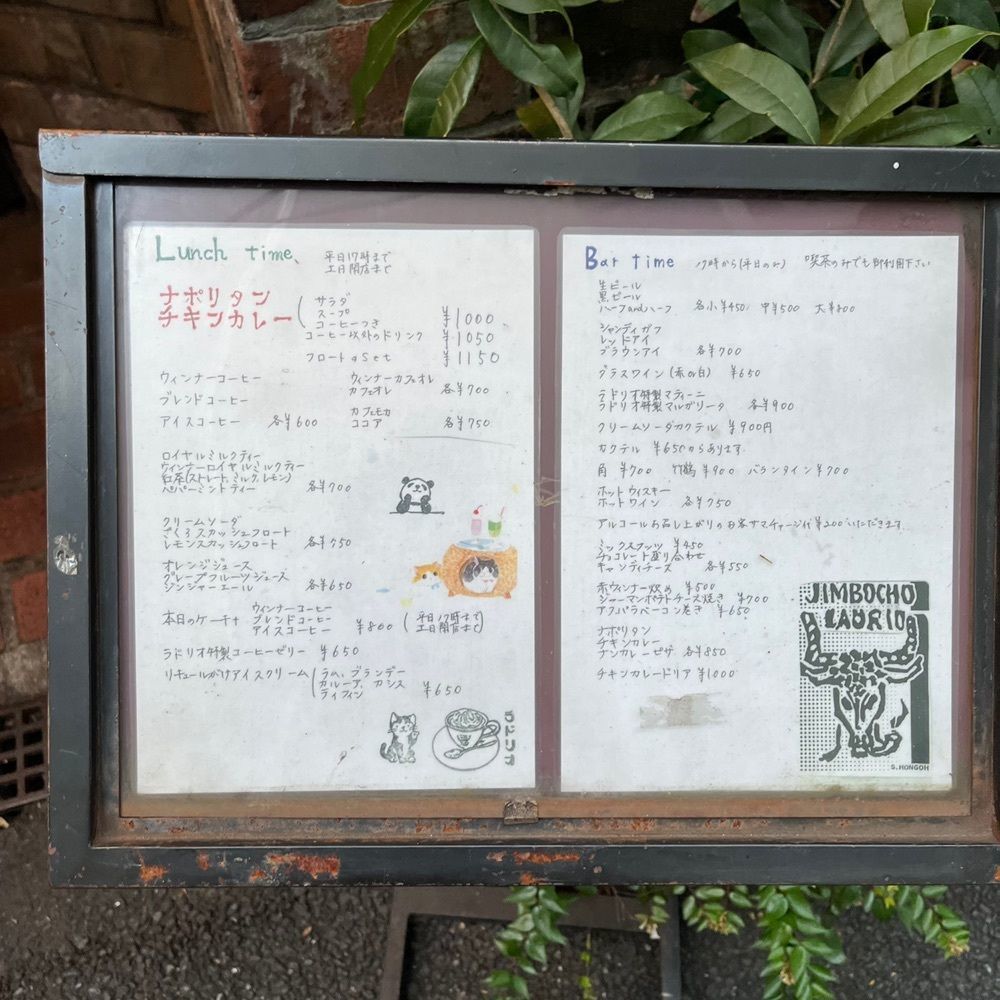 Lunch time、 平日17時まで
土日閉店まで
ナポリタン
チキンカレー
サラダ
スープ
コーヒーつき ¥1000
コーヒー以外のドリンク ¥1050
フロートaSet ¥1150
ウィンナーコーヒー
ブレンドコーヒー
アイスコーヒー 各¥600
ウィンナーカフェオレ
カフェオレ 各¥700
カフェモカ
ココア 各¥750
ロイヤルミルクティー
ウィンナーロイヤルミルクティー
紅茶(ストレート、ミルク、レモン)
ペパーミントティー 各¥700
クリームソーダ
ざくろスカッシュフロート
レモンスカッシュフロート 各¥750
オレンジジュース
グレープフルーツジュース
ジンジャーエール 各¥650
本日のケーキ+
ウィンナーコーヒー
ブレンドコーヒー
アイスコーヒー ¥800 (平日17時まで
土日閉店まで)
ラドリオ特製コーヒーゼリー ¥650
リキュールがけアイスクリーム
ラム、ブランデー
カルーア、カシス
ティフィン ¥650
Bar time 17時から(平日のみ) 喫茶のみでも御利用下さい
生ビール
黒ビール
ハーフandハーフ 各小¥450 中¥500 大¥800
シャンディガフ
レッドアイ
ブラウンアイ 各¥700
グラスワイン(赤or白) ¥650
ラドリオ特製マティーニ
ラドリオ特製マルガリータ 各¥900
クリームソーダカクテル ¥900円
カクテル ¥650からあります
角 ¥700 竹鶴 ¥900 バランタイン ¥700
ホットウィスキー
ホットワイン 各¥750
アルコールお召し上がりのお客サマチャージ代¥200いただきます
ミックスナッツ ¥450
チョコレート盛り合わせ
キャンディチーズ 各¥550
赤ウィンナー炒め ¥500
ジャーマンポテトチーズ焼き ¥700
アスパラベーコン巻き ¥650
ナポリタン
チキンカレー
ナンカレーピザ 各¥850
チキンカレードリア ¥1000
JIMBOCHO
LADRIO
S.HONGOH